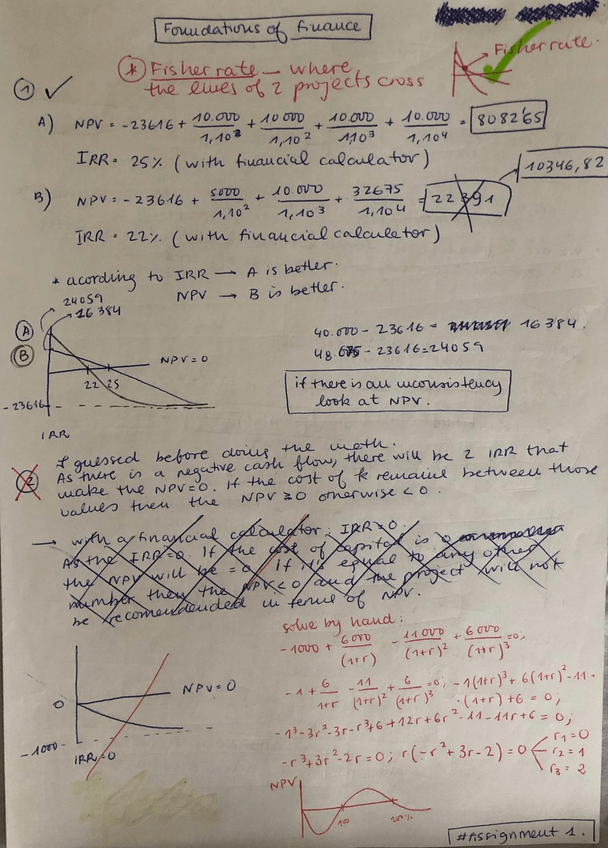 Foundations of finance
(*) Fisher rate — where
the lines of 2 projects cross
Fisher rate.
1 ✓
A) NPV = -23616 + 10.000/1,10² + 10000/1,10² + 10.000/1,10³ + 10.000/1,10⁴ = 8082'65
IRR = 25% (with financial calculator)
10346,82
B) NPV = -23616 + 5000/1,10² + 10.000/1,10³ + 32675/1,10⁴ = 22391
IRR = 22% (with financial calculator)
* acording to IRR → A is better.
NPV → B is better.
24059
16384
A
B
NPV=0
22 25
-23616
IRR
40.000 - 23616 = 16384.
48.675 - 23616 = 24059
if there is an inconsistency
look at NPV.
I guessed before doing the math.
2 As there is a negative cash flow, there will be 2 IRR that
make the NPV=0. If the cost of k remains between those
values then the NPV ≥ 0 otherwise < 0.
→ with a financial calculator: IRR=0.
As the IRR=0. If the cost of capital is 0
the NPV will be = 0. If it's equal to any other
number then the NPV<0 and the project will not
be recomendended in terms of NPV.
solve by hand:
-1000 + 6000/(1+r) - 11000/(1+r)² + 6000/(1+r)³ = 0;
-1 + 6/1+r - 11/(1+r)² + 6/(1+r)³ = 0; -1(1+r)³ + 6(1+r)² - 11·
·(1+r) + 6 = 0;
-1³-3r²-3r-r³+6+12r+6r²-11-11r+6=0;
-r³+3r²-2r=0; r(-r²+3r-2)=0
r₁=0
r₂=1
r₃=2
0
NPV=0
-1000
IRR=0
NPV
100
200%
#Assignment 1.